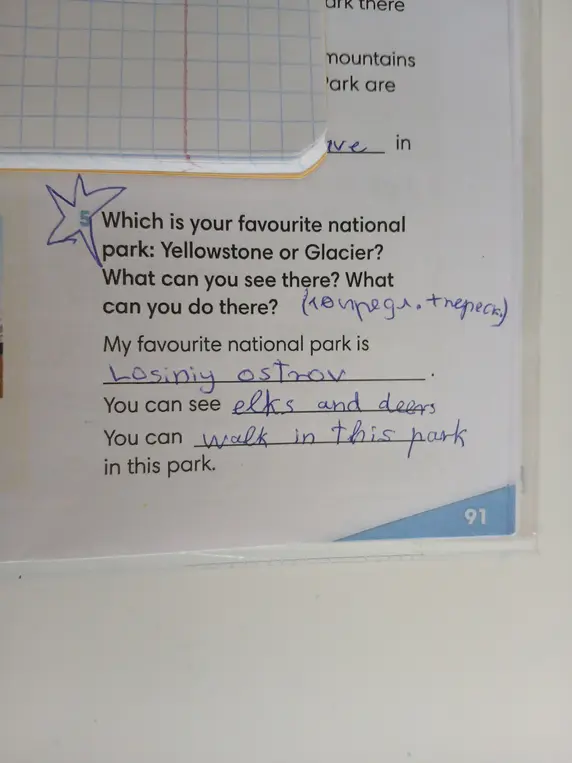 ark there
mountains
Park are
ve in
5 Which is your favourite national
park: Yellowstone or Glacier?
What can you see there? What
can you do there? (10 предл. + переск.)
My favourite national park is
Losiniy ostrov.
You can see elks and deers
You can walk in this park
in this park.
91